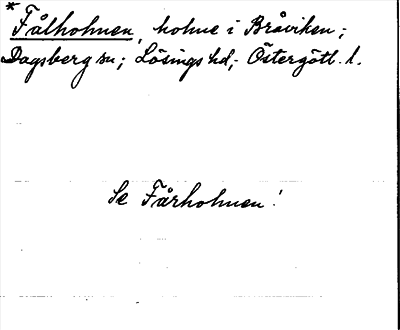 * Fålholmen, holme i Bråviken;
Dagsberg sn; Lösings hd; Östergötl. l.
Se Fårholmen!